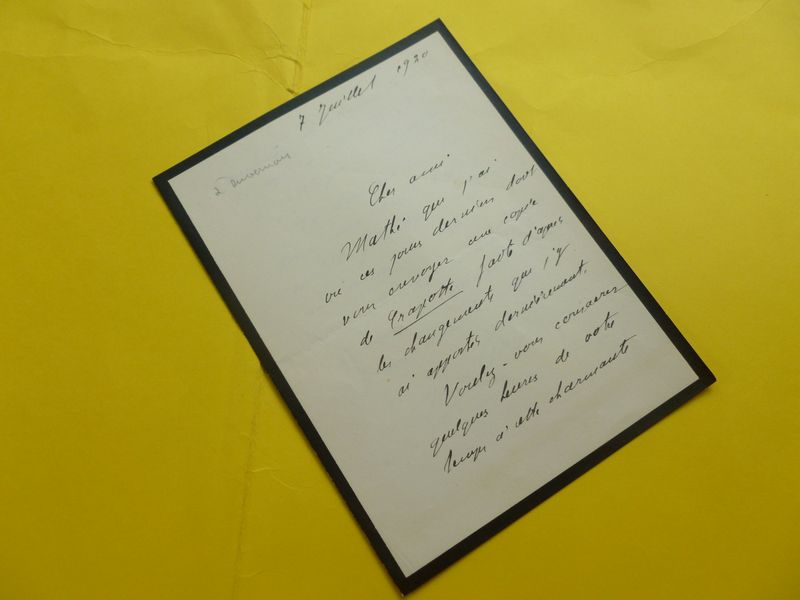 7 Juillet 1920
à Duvernois
Cher ami.
Mathé qui j'ai
vu ces jours derniers doit
vous envoyer une copie
de faite d'après
les changements que j'y
ai apportés dernièrement.
Voulez-vous consacrer
quelques heures de votre
temps à cette charmante